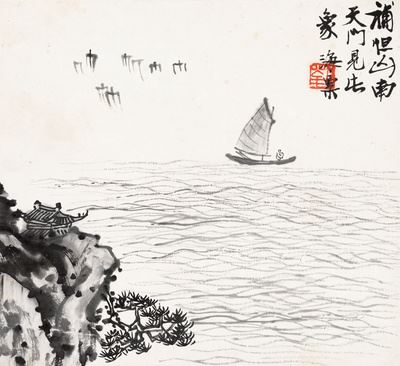 補怛山南
天門見此
象 海粟